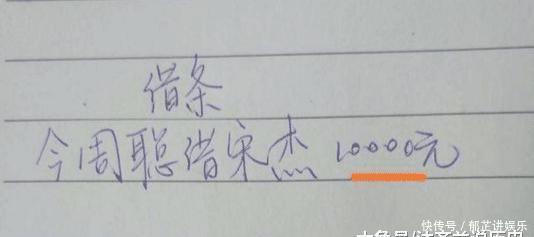 借条
今周聪借宋杰 10000元
快传号/郁芷进娱乐